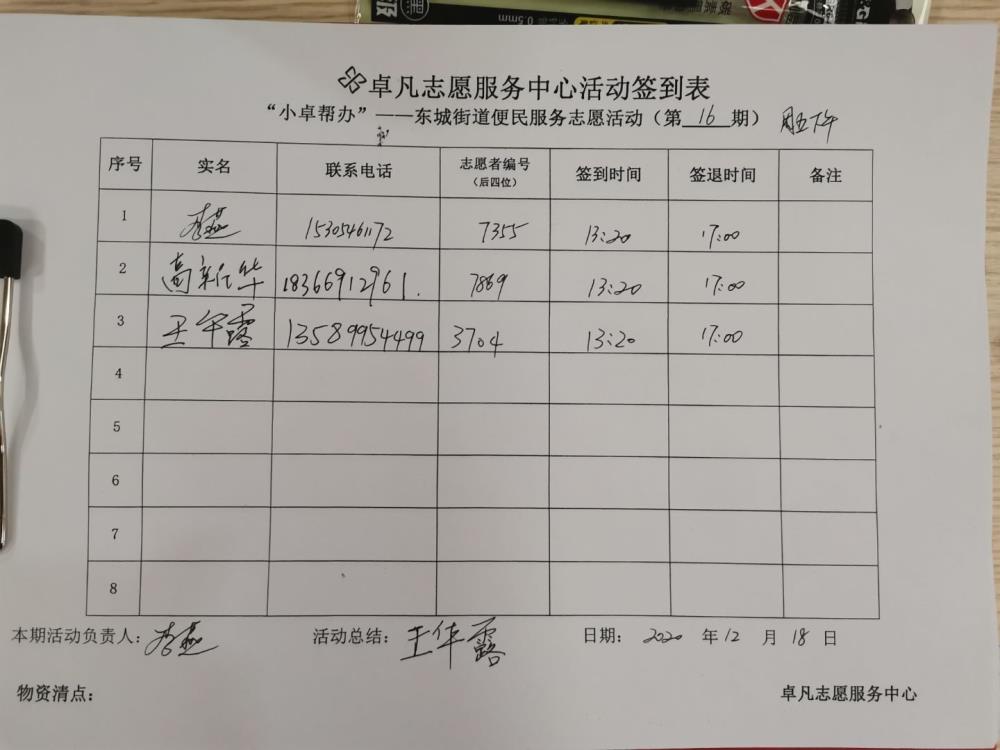 0.5mm
卓凡志愿服务中心活动签到表
“小卓帮办”——东城街道便民服务志愿活动（第 16 期） 周五下午
序号 实名 联系电话 志愿者编号（后四位） 签到时间 签退时间 备注
1 李燕 15305461172 7355 13:20 17:00
2 高新华 18366912961. 7869 13:20 17:00
3 王华露 13589954499 3704 13:20 17:00
4
5
6
7
8
本期活动负责人：李燕 活动总结：王华露 日期： 2020 年 12 月 18 日
物资清点： 卓凡志愿服务中心